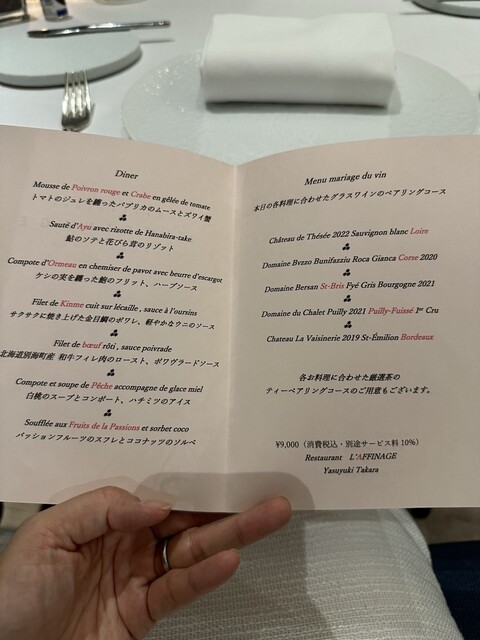 Dîner
Mousse de Poivron rouge et Crabe en gêlée de tomate
トマトのジュレを纏ったパプリカのムースとズワイ蟹
Sauté d'Ayu avec rizotte de Hanabira-take
鮎のソテと花びら茸のリゾット
Compote d'Ormeau en chemiser de pavot avec beurre d'escargot
ケシの実を纏った鮑のフリット、ハーブソース
Filet de Kinme cuit sur lécaille , sauce à l'oursins
サクサクに焼き上げた金目鯛のポワレ、軽やかなウニのソース
Filet de bœuf rôti , sauce poivrade
北海道別海町産 和牛フィレ肉のロースト、ポワヴラードソース
Compote et soupe de Pêche accompagne de glace miel
白桃のスープとコンポート、ハチミツのアイス
Soufflée aux Fruits de la Passions et sorbet coco
パッションフルーツのスフレとココナッツのソルベ
Menu mariage du vin
本日の各料理に合わせたグラスワインのペアリングコース
Château de Thésée 2022 Sauvignon blanc Loire
Domaine Bvzzo Bunifazziu Roca Gianca Corse 2020
Domaine Bersan St-Bris Fyé Gris Bourgogne 2021
Domaine du Chalet Puilly 2021 Puilly-Fuissé 1er Cru
Chateau La Vaisinerie 2019 St-Émilion Bordeaux
各お料理に合わせた厳選茶の
ティーペアリングコースのご用意もございます。
¥9,000（消費税込・別途サービス料 10%）
Restaurant L'AFFINAGE
Yasuyuki Takara